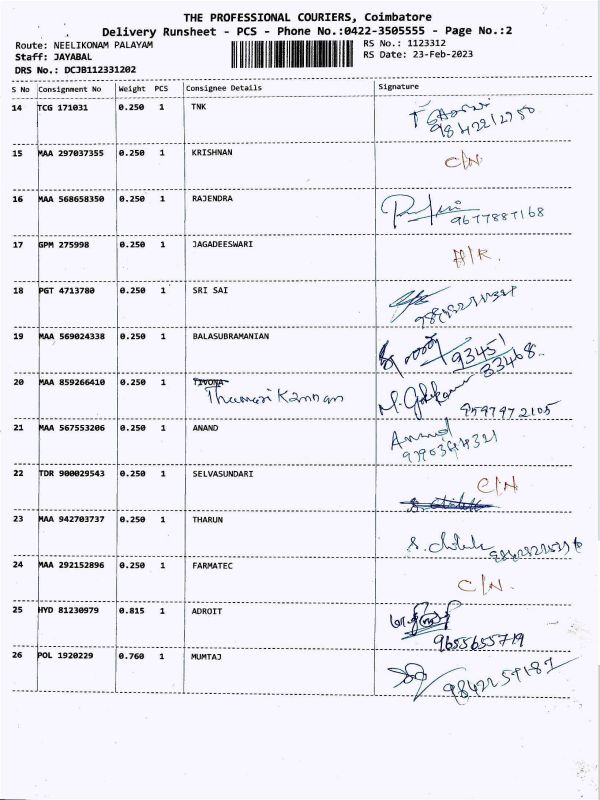 THE PROFESSIONAL COURIERS, Coimbatore
Delivery Runsheet - PCS - Phone No.:0422-3505555 - Page No.:2
Route: NEELIKONAM PALAYAM RS No.: 1123312
Staff: JAYABAL RS Date: 23-Feb-2023
DRS No.: DCJB112331202
S No Consignment No Weight PCS Consignee Details Signature
14 TCG 171031 0.250 1 TNK
15 MAA 297037355 0.250 1 KRISHNAN C/N.
16 MAA 568658350 0.250 1 RAJENDRA 9677887168
17 GPM 275998 0.250 1 JAGADEESWARI
18 PGT 4713780 0.250 1 SRI SAI
19 MAA 569024338 0.250 1 BALASUBRAMANIAN 93451
33468
20 MAA 859266410 0.250 1 TIVONA
Thamarai Kannan 9597972105
21 MAA 567553206 0.250 1 ANAND Anand
22 TDR 900029543 0.250 1 SELVASUNDARI C/N
23 MAA 942703737 0.250 1 THARUN
24 MAA 292152896 0.250 1 FARMATEC C/N.
25 HYD 81230979 0.815 1 ADROIT
9655655719
26 POL 1920229 0.760 1 MUMTAJ
9842259187